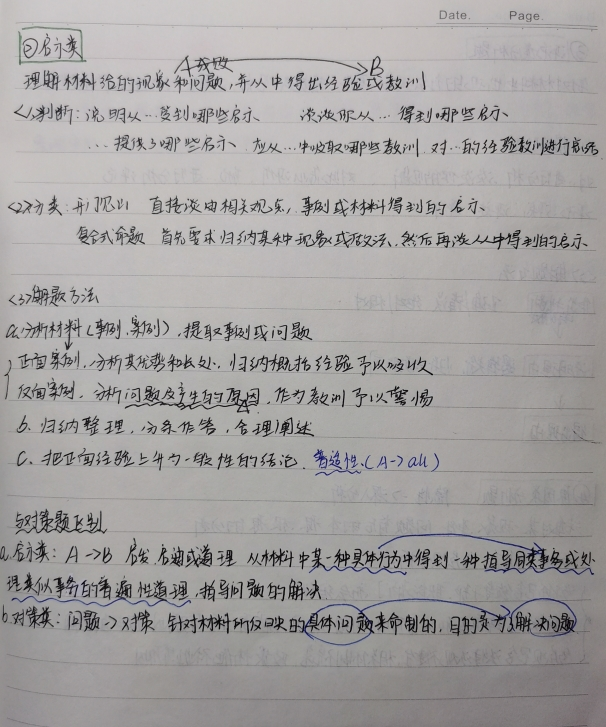 Date.        Page.
②启示类
A成败 B
理解材料给的现象和问题,并从中得出经验或教训
<1>判断:说明从…受到哪些启示、谈谈你从…得到哪些启示、
…提供了哪些启示、应从…中吸取哪些教训、对…的经验教训进行总结
<2>分类:开门见山 直接谈由相关观点,事例或材料得到的启示、
复合式命题 首先要求归纳某种现象或做法,然后再谈从中得到的启示、
<3>解题方法
a.分析材料(事例、案例),提取事例或问题
正面案例,分析其优势和长处,归纳概括经验予以吸收
反面案例,分析问题及产生的原因,作为教训予以警惕
b.归纳整理,分条作答,合理阐述
C、把正面经验上升为一般性的结论,普适性.(A→all)
与对策题区别
a.启示类:A→B 启发、启迪或道理 从材料中某一种具体行为中得到一种指导同类事务或处
理类似事务的普遍性道理,指导问题的解决
b.对策类:问题→对策 针对材料所反映的具体问题来命制的,目的是为了解决问题